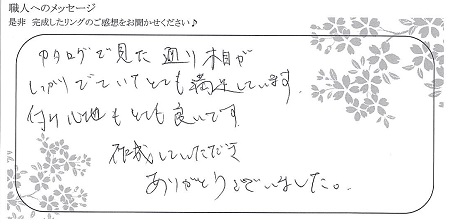 職人へのメッセージ
是非 完成したリングのご感想をお聞かせください♪
カタログで見た通り木目が
しっかりでていてとても満足しています.
付け心地もとても良いです
作成していただき
ありがとうございました。